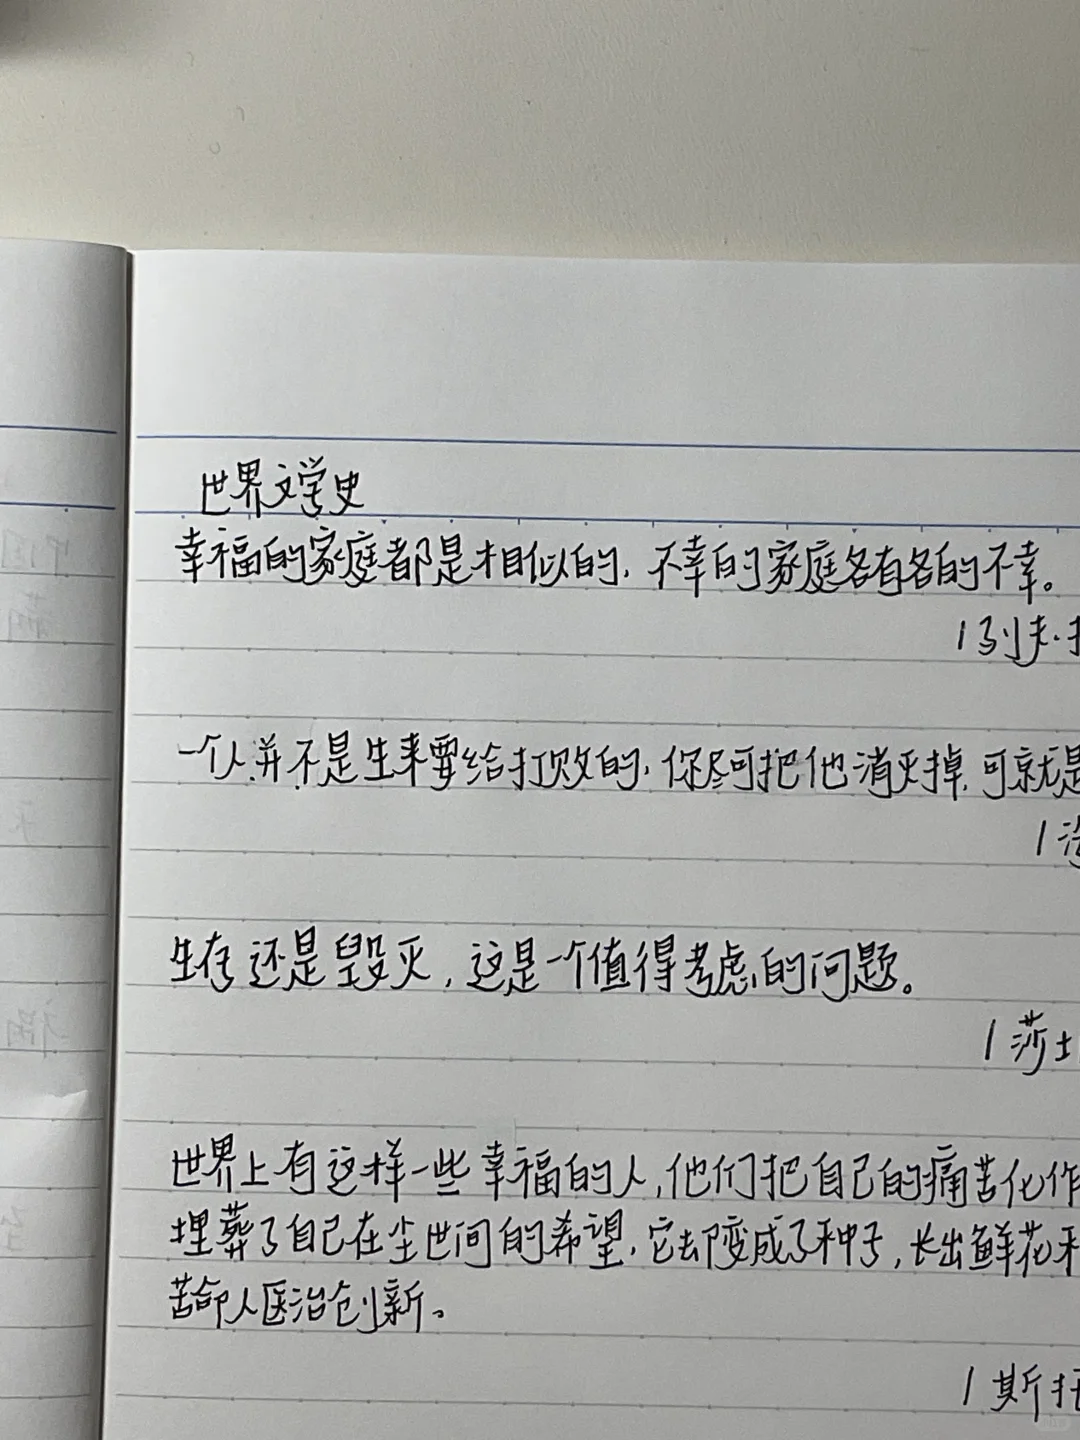 世界文学史
幸福的家庭都是相似的,不幸的家庭各有各的不幸。
|列夫·
一个人并不是生来要给打败的,你尽可把他消灭掉,可就是
|海
生存还是毁灭,这是一个值得考虑的问题。
|莎士
世界上有这样一些幸福的人,他们把自己的痛苦化作
埋葬了自己在尘世间的希望,它却变成了种子,长出鲜花和
苦命人医治创新。
|斯托